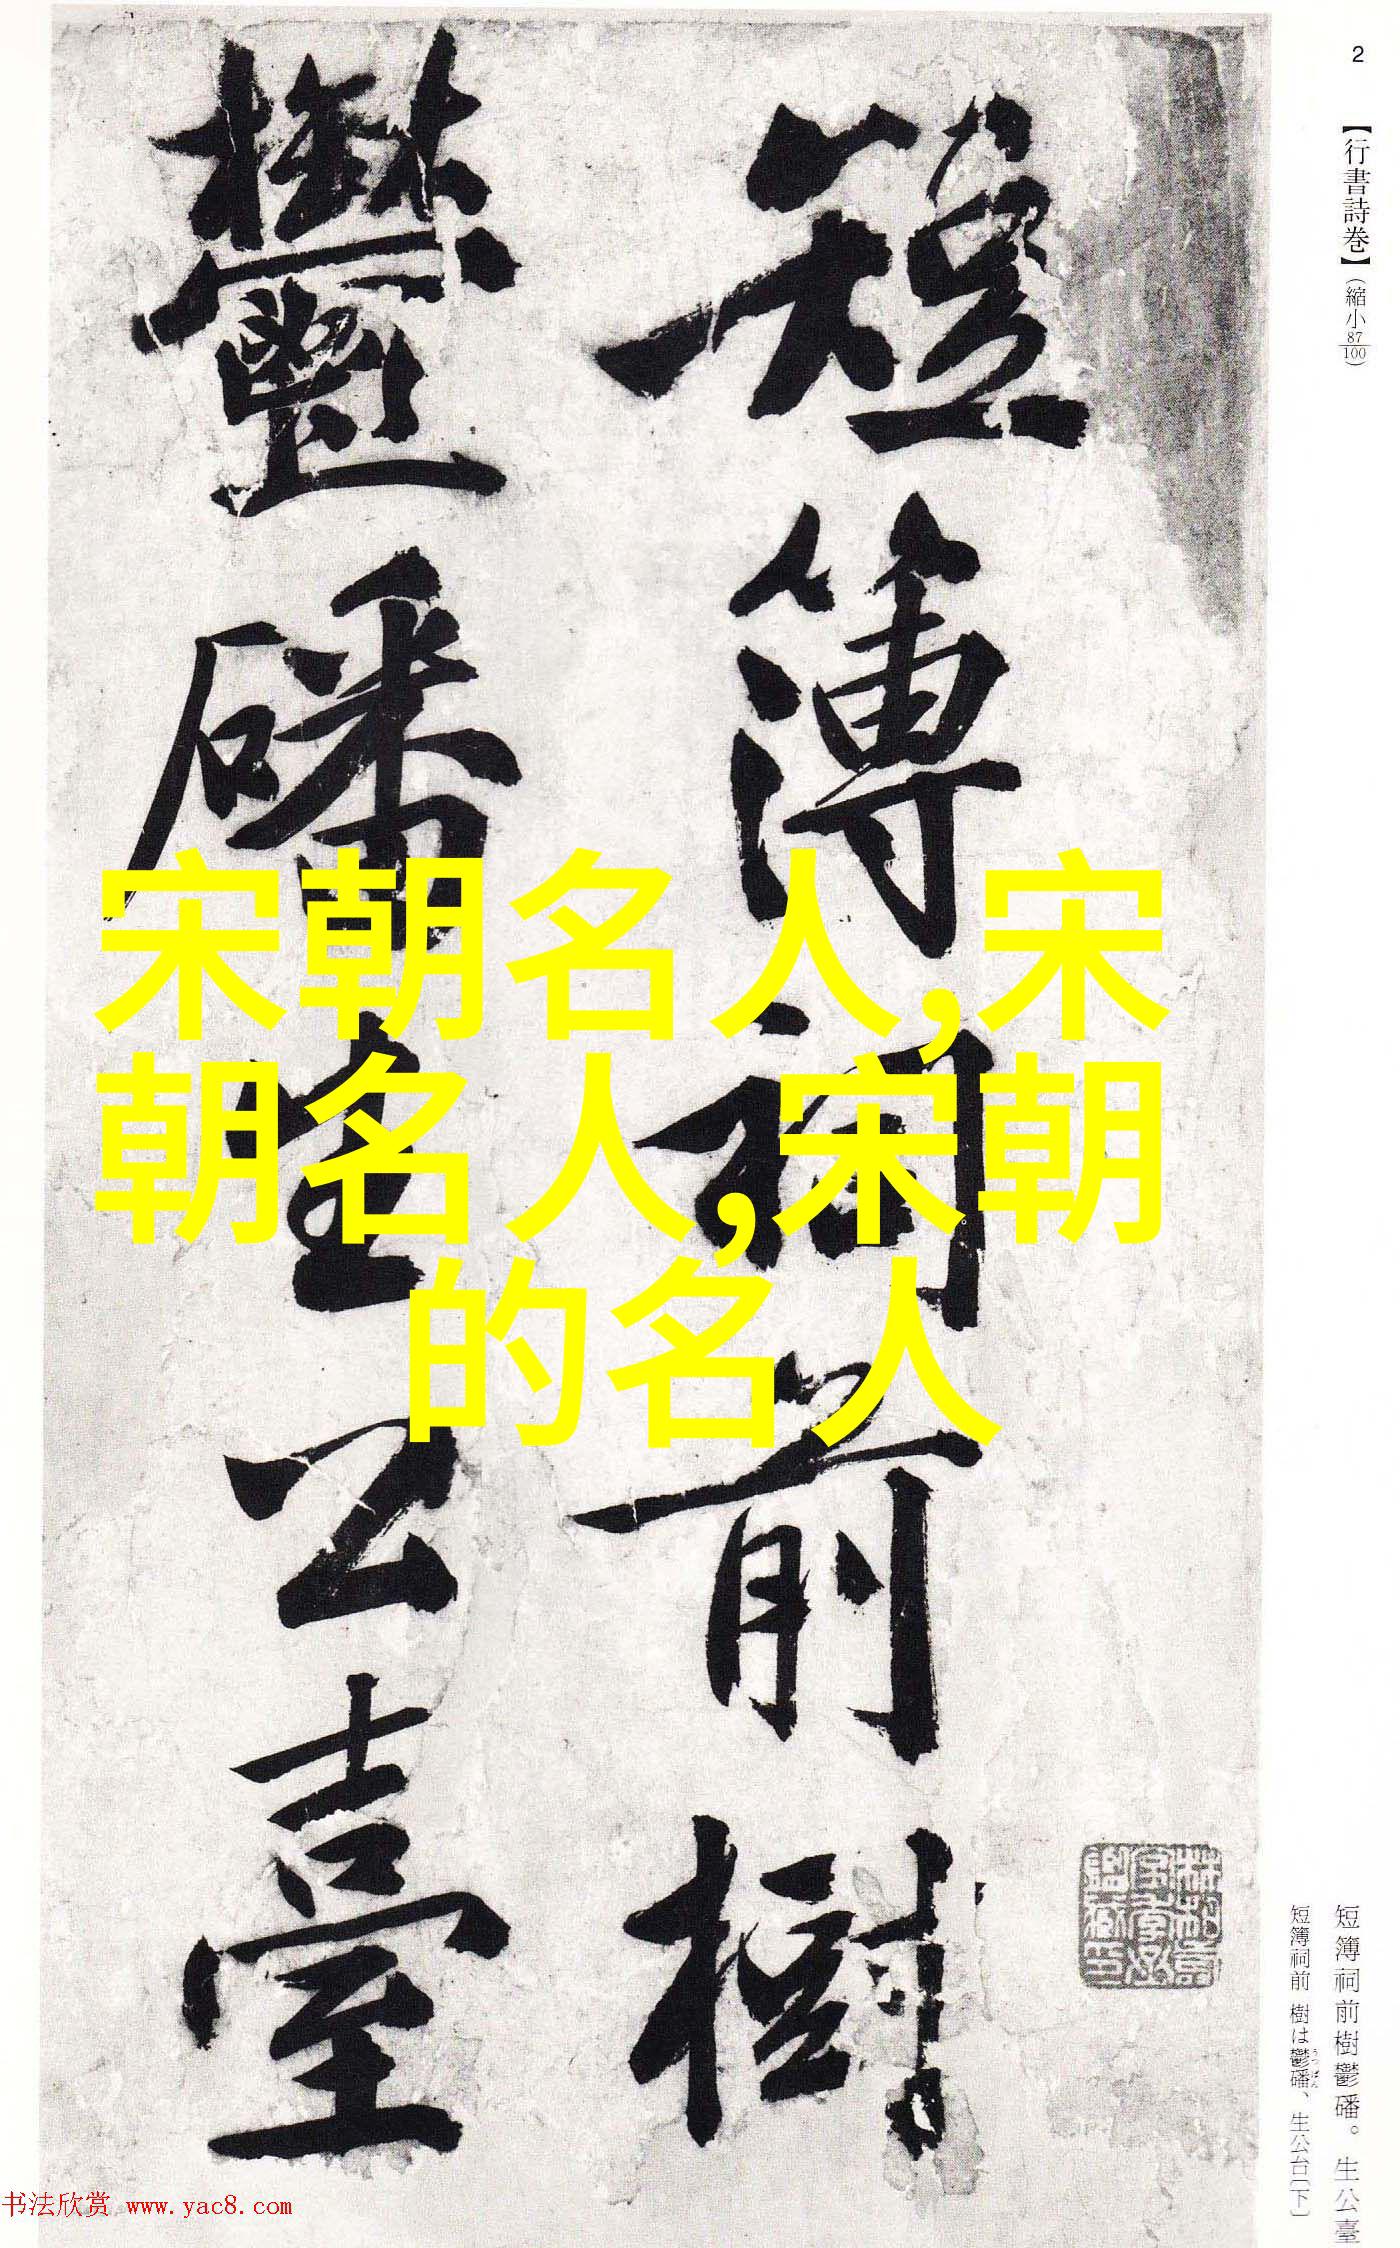 2
【行書詩巻】(縮小87/100)
短簿祠前樹
鬱磻生公臺
宋朝名人,宋
朝名人,宋朝
的名人
短簿祠前樹鬱磻。生公臺
短簿祠前 樹は鬱磻、生公台〔下〕
书法欣赏 www.yac8.com